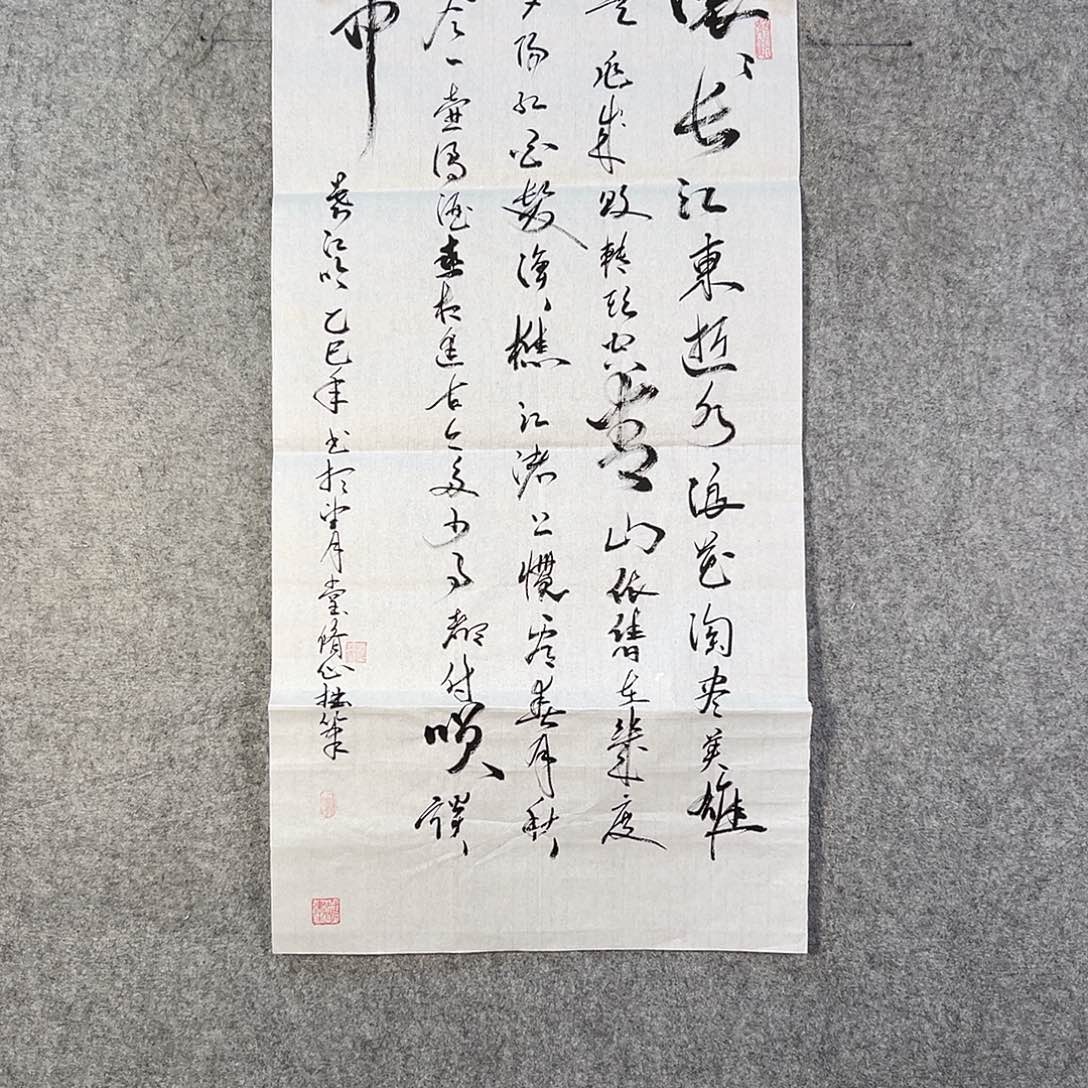 滚、长江東逝水浪花淘尽英雄
是非成敗轉頭空青山依舊在幾度
夕陽红白髮漁、樵江渚上慣看春月秋、
一壺濁酒喜相逢古今多少事都付
中
江吟乙巳年书於望月堂脩心拙筆